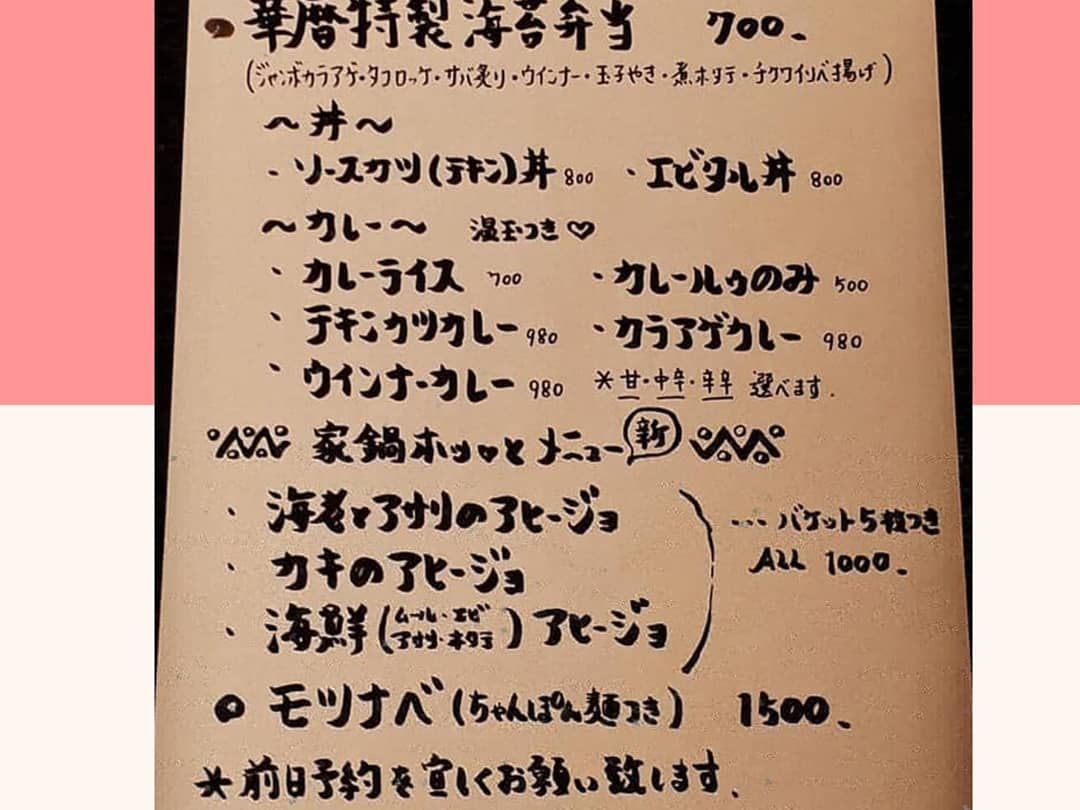 華暦特製海苔弁当 700.
(ジャンボカラアゲ・タコロッケ・サバ炙り・ウインナー・玉子やき・煮ホタテ・チクワイソベ揚げ)
～丼～
・ソースカツ(チキン)丼 800 ・エビタル丼 800
～カレー～ 温玉つき♡
・カレーライス 700 ・カレールゥのみ 500
・チキンカツカレー 980 ・カラアゲカレー 980
・ウインナーカレー 980 *甘・中辛・辛 選べます.
家鍋ホッッとメニュー 新
・海老とアサリのアヒージョ
・カキのアヒージョ
・海鮮(ムール・エビ アサリ・ホタテ)アヒージョ
... バケット5枚つき
ALL 1000.
○ モツナベ(ちゃんぽん麺つき) 1500.
*前日予約を宜しくお願い致します.